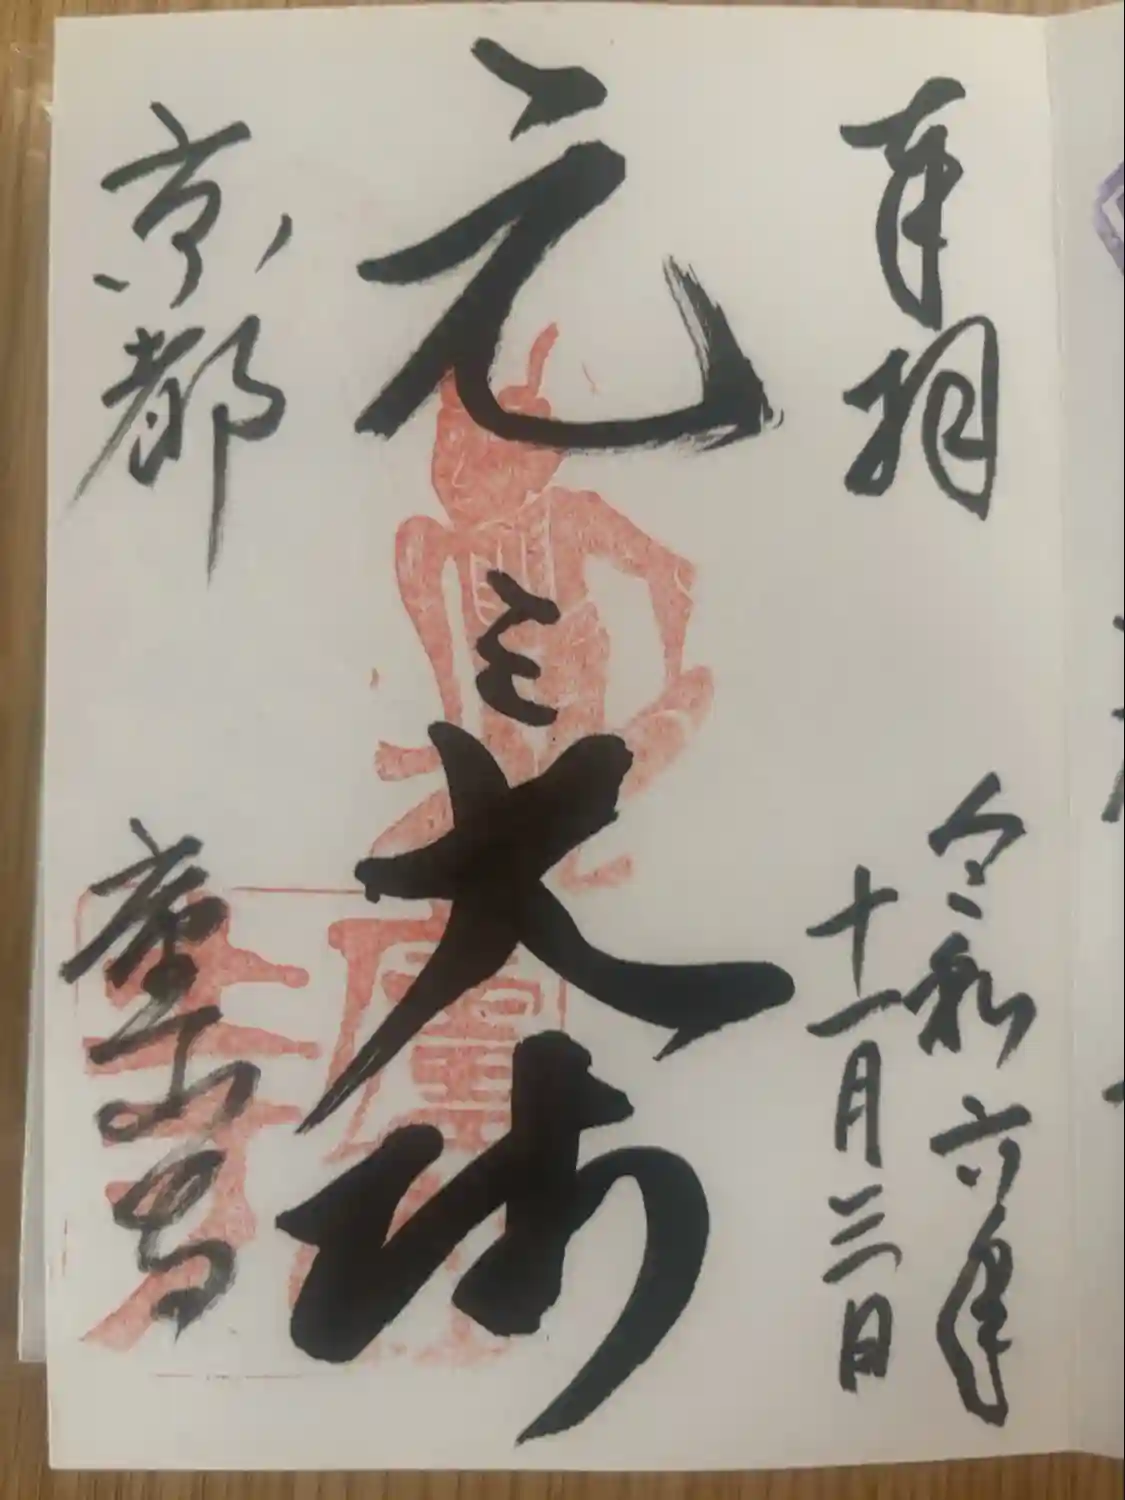 奉拝
令和六年
十一月三日
元三大師
京都
廬山寺